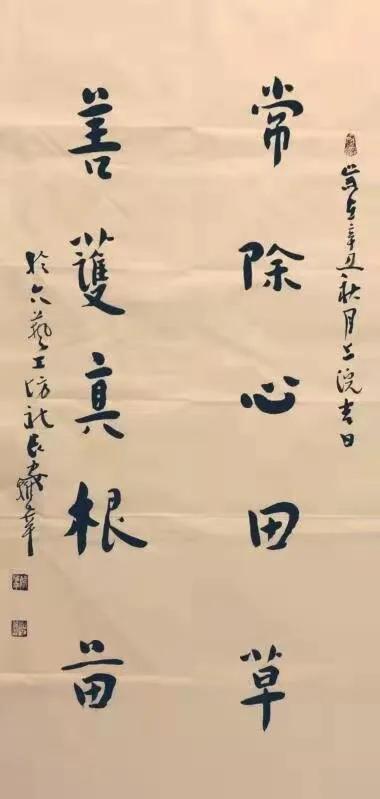 歲在辛丑秋月上浣吉日
常除心田草
善護真根苗
於六藝工坊